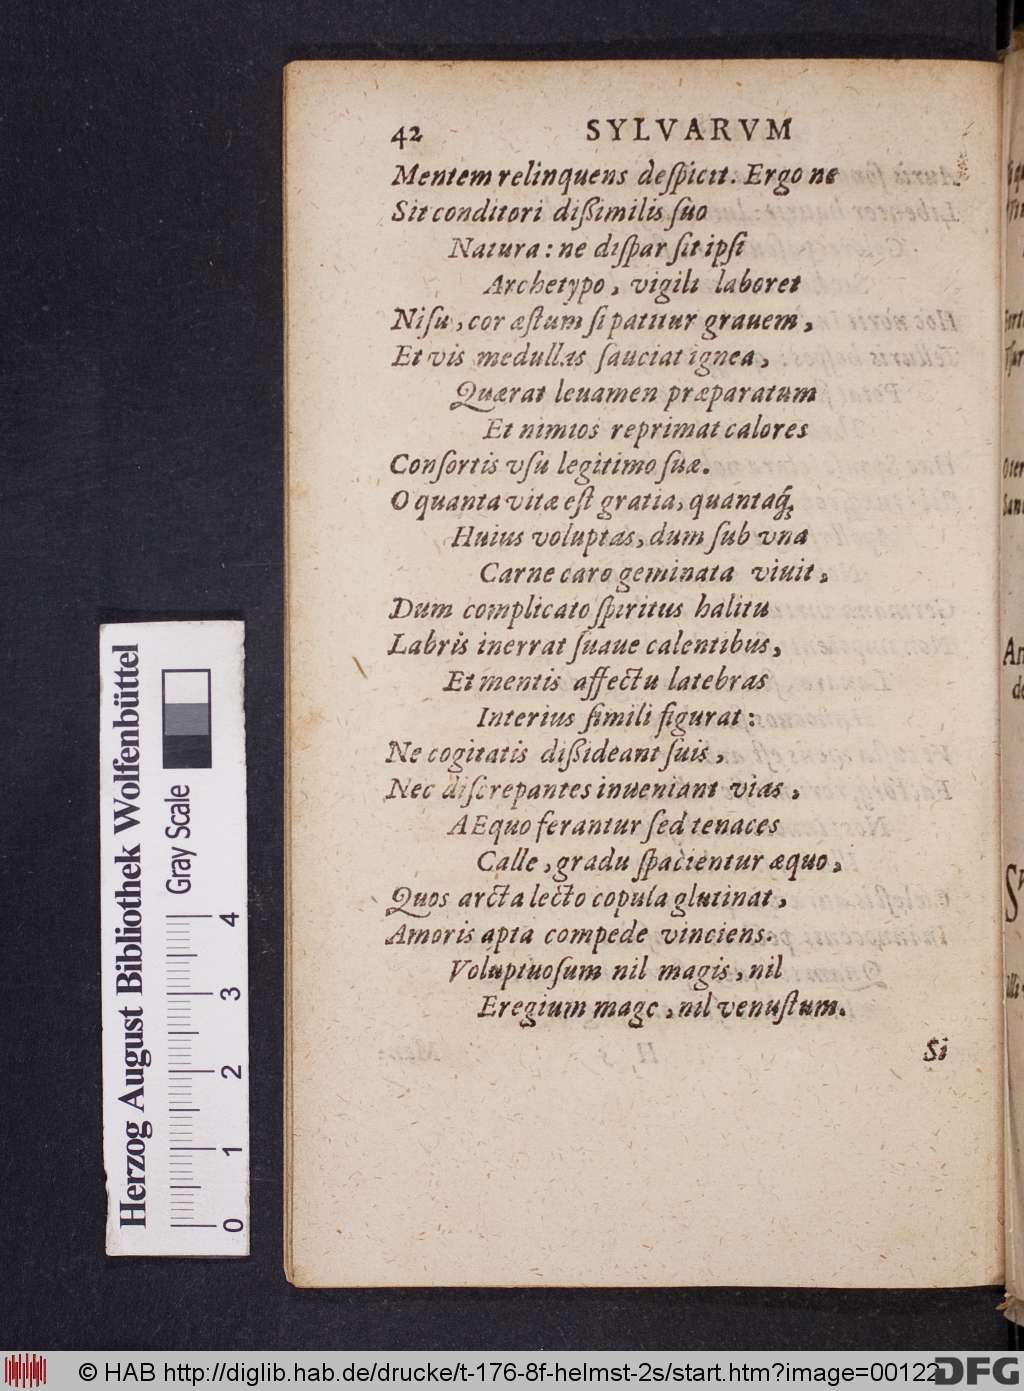 42 SYLVARVM
Mentem relinquens deſpicit. Ergo ne
Sit conditori dißimilis ſuo
Natura: ne diſpar ſit ipſi
Archetypo, vigili laboret
Niſu, cor æſtum ſi patitur grauem,
Et vis medullas ſauciat ignea,
Quærat leuamen præparatum
Et nimios reprimat calores
Conſortis vſu legitimo ſuæ.
O quanta vitæ eſt gratia, quantaq́;
Huius voluptas, dum ſub vna
Carne caro geminata viuit,
Dum complicato ſpiritus halitu
Labris inerrat ſuaue calentibus,
Et mentis affectu latebras
Interius ſimili figurat:
Ne cogitatis dißideant ſuis,
Nec diſcrepantes inueniant vias,
AEquo ferantur ſed tenaces
Calle, gradu ſpacientur æquo,
Quos arcta lecto copula glutinat,
Amoris apta compede vinciens.
Voluptuoſum nil magis, nil
Eregium mage, nil venuſtum.
Si
Herzog August Bibliothek Wolfenbüttel
Gray Scale
0 1 2 3 4
© HAB http://diglib.hab.de/drucke/t-176-8f-helmst-2s/start.htm?image=00122
DFG